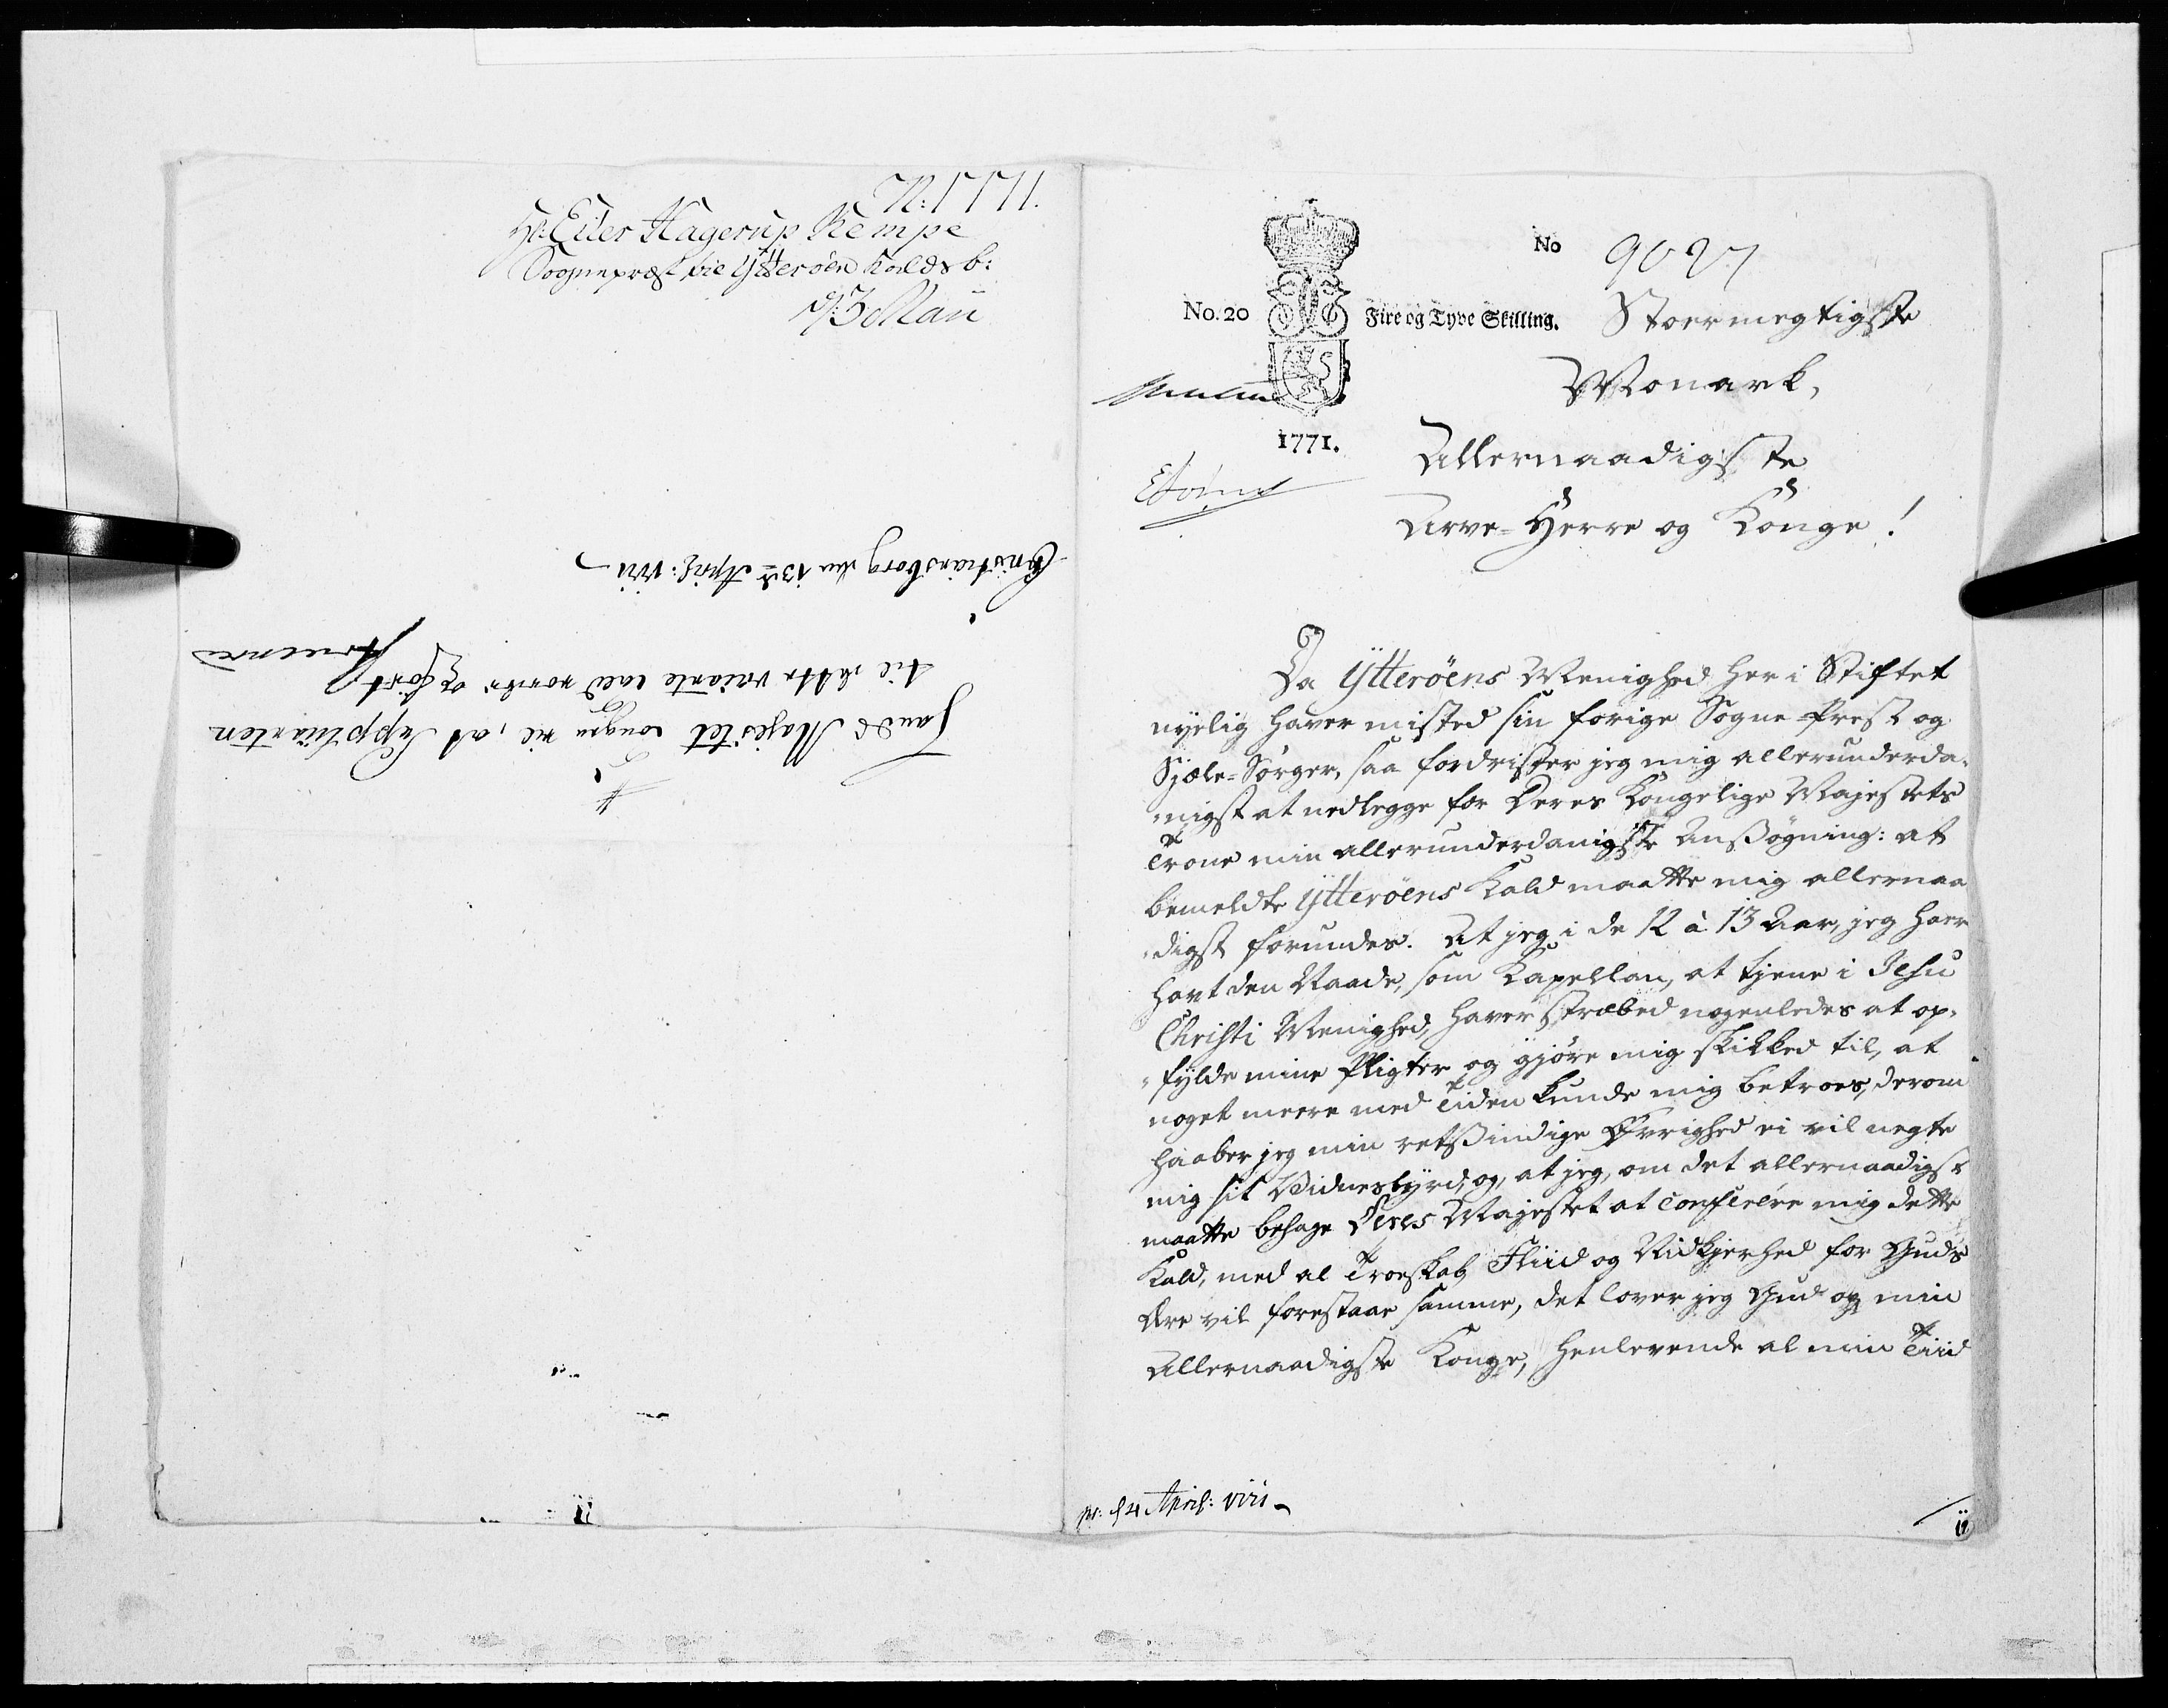 N: 1771.
Hr: Eiler Hagerup Kempe
Sognepræst vie Ytterøen Kalds b:
d: 3 Maii
Christiansborg den 13de April:
til dette vacante Kald worder
Hands Majestet at Supplicanten
No 9027
No. 20 Fire og Tyve Skilling. Stoermegtigste
Monark,
1771. Allernaadigste
Arve-Herre og Konge!
Da Ytterøens Menighed her i Stiftet
nyelig haver misted sin forige Sogne-Prest og
Sjæle-Sørger, saa fordrister jeg mig allerunderda-
nigst at nedlegge for Deres Kongelige Majestets
Trone min allerunderdanigste Ansøgning: at
bemeldte Ytterøens Kald maatte mig allernaa
digst forundes. At jeg i de 12 à 13 Aar, jeg haver
havt den Naade, som Kapellan, at tjene i Jesu
Christi Menighed, haver stræbed nogenledes at op-
fylde mine Pligter og gjøre mig skikked til, at
noget meere med Tiden kunde mig betroes, derom
haaber jeg min retsindige Øvrighed ei vil negte
mig sit Vidnesbyrd, og, at jeg, om det allernaadigst
maatte behage Deres Majestet at conferere mig dette
Kald, med al Troeskab Fliid og Nidkjerhed for Guds
Ære vil forestaae samme, det lover jeg Gud og min
Allernaadigste Konge, henlevende al min Tiid
pr: 14 April: